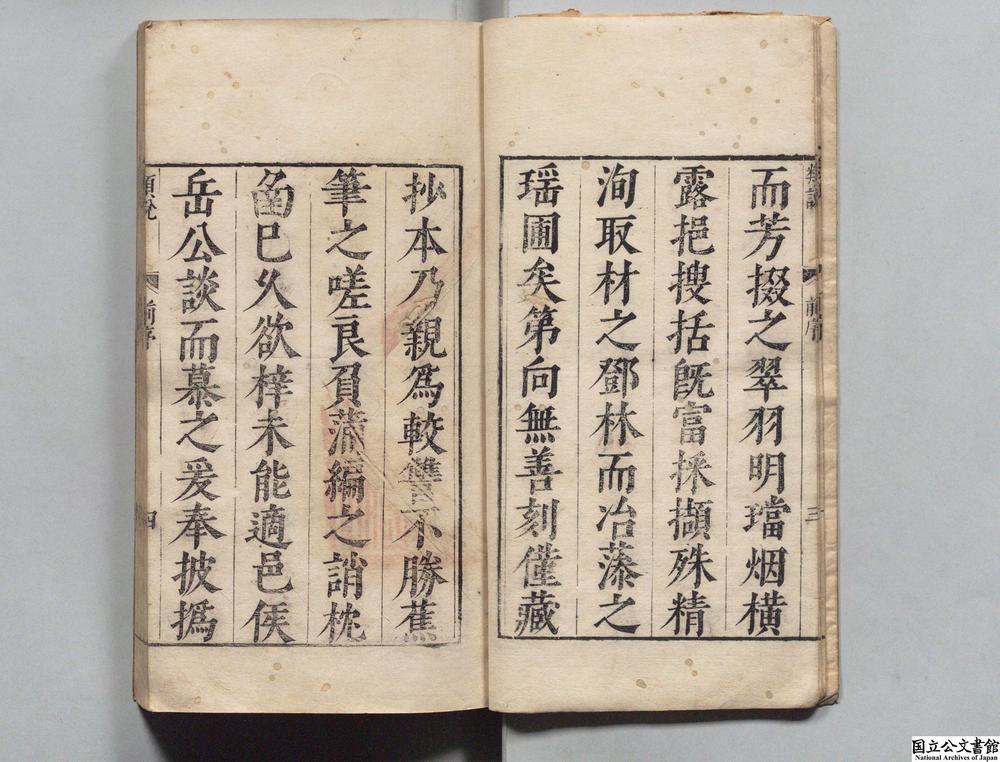 而芳掇之翠羽明璫烟橫
露挹搜括旣富採擷殊精
洵取材之鄧林而冶藻之
瑶圃矣第向無善刻僅藏
類說 前序 三
抄本乃親爲較讐不勝蕉
筆之嗟良負蒲編之誚枕
函巳久欲梓未能適邑矦
岳公談而慕之爰奉披撝
類說 前序 四
国立公文書館
National Archives of Japan